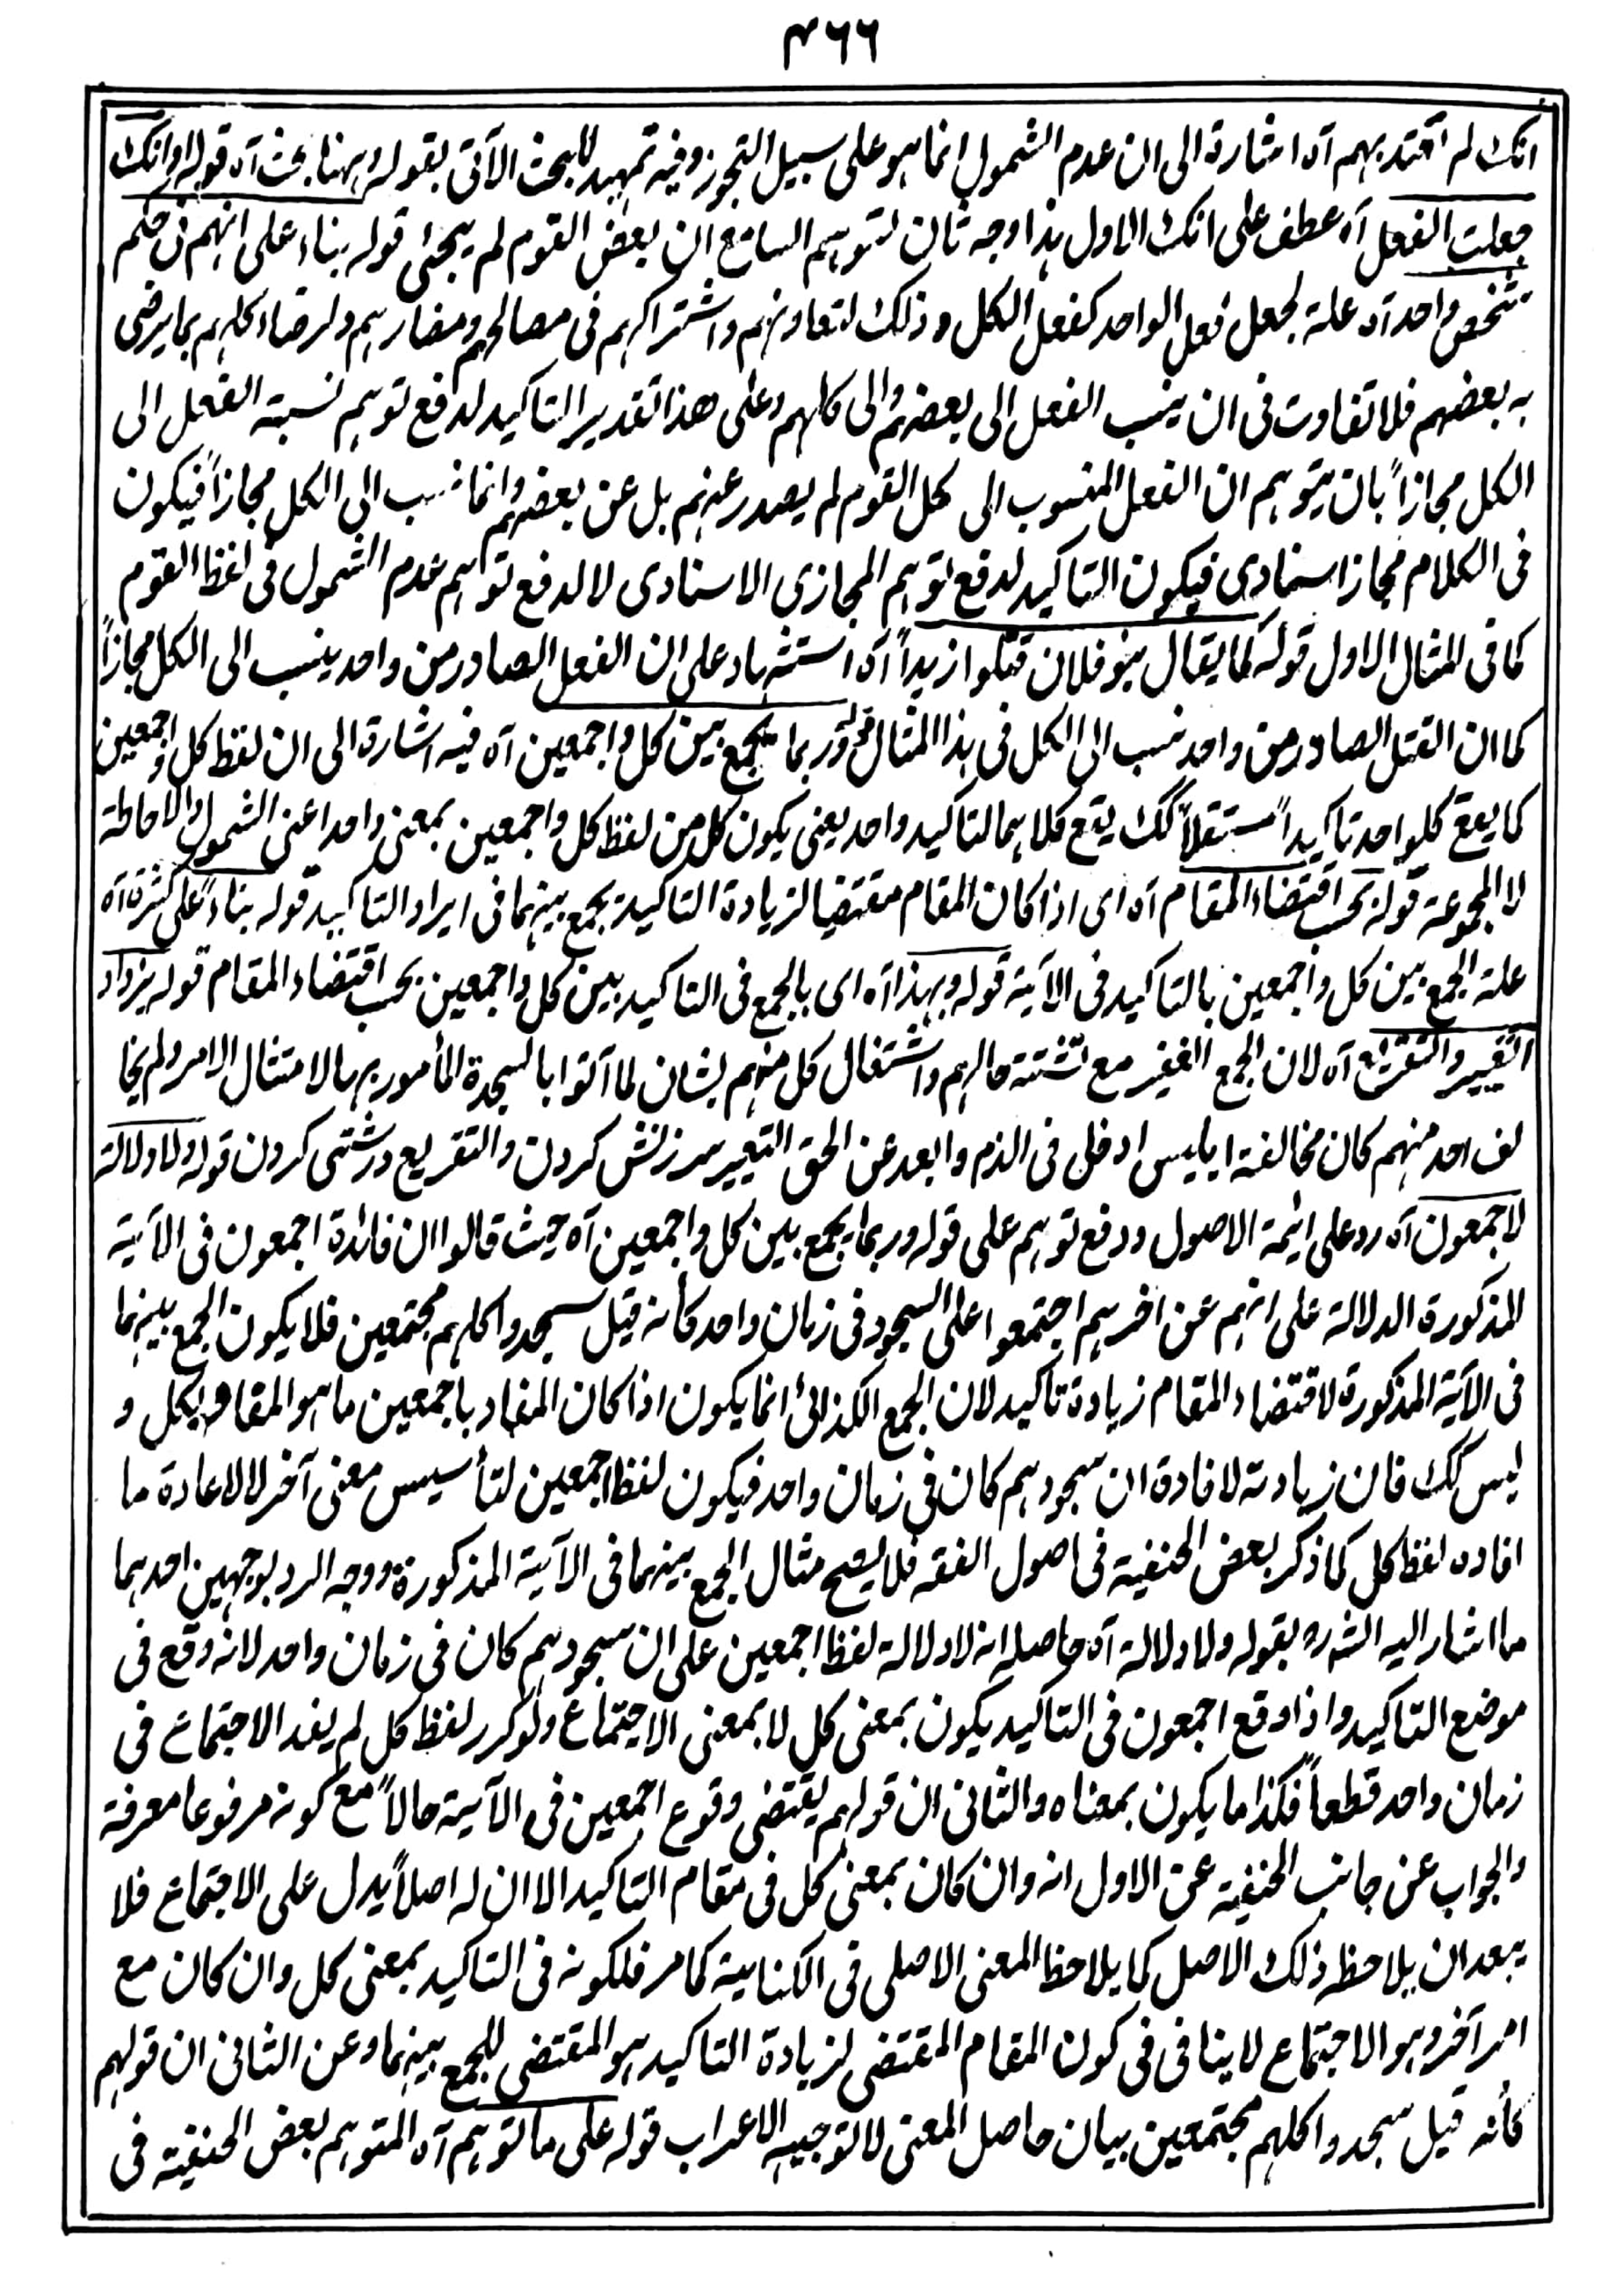 ۴۶۶
انک لم تعتد بہم آہ اشارة الی ان عدم الشمول انما ہو علی سبیل التجوز وفیہ تمہید للبحث الآتی بقولہ وہہنا بحث آہ قولہ او انک
جعلت الفعل آہ عطف علی انک الاول ہذا وجہ ثان لتوہم السامع ان بعض القوم لم یجئی قولہ بناء علی انہم فی حکم
شخص واحد آہ علة لجعل فعل الواحد کفعل الکل وذلک لتعاونہم واشتراکہم فی مصالحہم ومضارہم ولرضاء کلہم بما یرضی
بہ بعضہم فلا تفاوت فی ان ینسب الفعل الی بعضہم والی کلہم وعلی ھذا تقدیر التاکید لدفع توہم نسبتہ الفعل الی
الکل مجازاً بان یتوہم ان الفعل المنسوب الی کل القوم لم یصدر عنہم بل عن بعضہم وانما نسب الی الکل مجازاً فیکون
فی الکلام مجاز اسنادی فیکون التاکید لدفع توہم المجازی الاسنادی لا لدفع توہم عدم الشمول فی لفظ القوم
کما فی المثال الاول قولہ کما یقال بنو فلان قتلوا زیداً آہ استشہاد علی ان الفعل الصادر من واحد ینسب الی الکل مجازاً
کما ان القتل الصادر من واحد نسب الی الکل فی ہذا المثال قولہ وربما یجمع بین کل واجمعین آہ فیہ اشارة الی ان لفظ کل واجمعین
کما یقع کلواحد تاکیداً مستقلاً کک یقع کلاہما لتاکید واحد یعنی یکون کل من لفظ کل واجمعین بمعنی واحد اعنی الشمول والاحاطة
لا المجموعة قولہ بحسب اقتضاء المقام آہ ای اذا کان المقام مقتضیا لزیادة التاکید یجمع بینہما فی ایراد التاکید قولہ بناءً علی کثرة آہ
علة الجمع بین کل واجمعین بالتاکید فی الآیة قولہ وبہذا آہ ای بالجمع فی التاکید بین کل واجمعین بحسب اقتضاء المقام قولہ یزداد
التعییر والتقریع آہ لان الجمع الغفیر مع تشتتہ حالہم واشتغال کل منہم بشان لما آتوا بالسجدة المأمور بہا لامتثال الامر ولم یخا
لف احد منہم کان مخالفة ابلیس ادخل فی الذم وابعد عن الحق التعییر سرزنش کردن والتقریع درشتی کردن قولہ ولا دلالة
لاجمعون آہ رد علی ائمة الاصول ودفع توہم علی قولہ وربما یجمع بین کل واجمعین آہ حیث قالوا ان فائدة اجمعون فی الآیة
المذکورة الدلالة علی انہم عن اخرہم اجتمعوا علی السجود فی زمان واحد کأنہ قیل سجدوا کلہم مجتمعین فلا یکون الجمع بینہما
فی الآیة المذکورة لاقتضاء المقام زیادة تاکید لان الجمع الکذائی انما یکون اذا کان المفاد باجمعین ما ہو المفاد بکل و
لیس کک فان زیادتہ لافادة ان سجودہم کان فی زمان واحد فیکون لفظ اجمعین لتأسیس معنی آخر لا لاعادة ما
افادہ لفظ کل کما ذکر بعض الحنفیة فی اصول الفقہ فلا یصح مثال الجمع بینہما فی الآیة المذکورة ووجہ الرد بوجہین احدہما
ما اشار الیہ الشرہ بقولہ ولا دلالة آہ حاصلہ انہ لا دلالة لفظ اجمعین علی ان سجودہم کان فی زمان واحد لانہ وقع فی
موضع التاکید واذا وقع اجمعون فی التاکید یکون بمعنی کل لا بمعنی الاجتماع ولو کرر لفظ کل لم یفد الاجتماع فی
زمان واحد قطعاً فکذا ما یکون بمعناہ والثانی ان قولہم یقتضی وقوع اجمعین فی الآیة حالاً مع کونہ مرفوعا معرفة
والجواب عن جانب الحنفیة عن الاول انہ وان کان بمعنی کل فی مقام التاکید الا ان لہ اصلاً یدل علی الاجتماع فلا
یبعد ان یلاحظ ذلک الاصل کما یلاحظ المعنی الاصلی فی الکنایة کما مر فلکونہ فی التاکید بمعنی کل وان کان مع
امر آخر وہو الاجتماع لا ینافی فی کون المقام المقتضی لزیادة التاکید ہو المقتضی للجمع بینہما وعن الثانی ان قولہم
کأنہ قیل سجدوا کلہم مجتمعین بیان حاصل المعنی لا توجیہ الاعراب قولہ علی ما توہم آہ المتوہم بعض الحنفیة فی